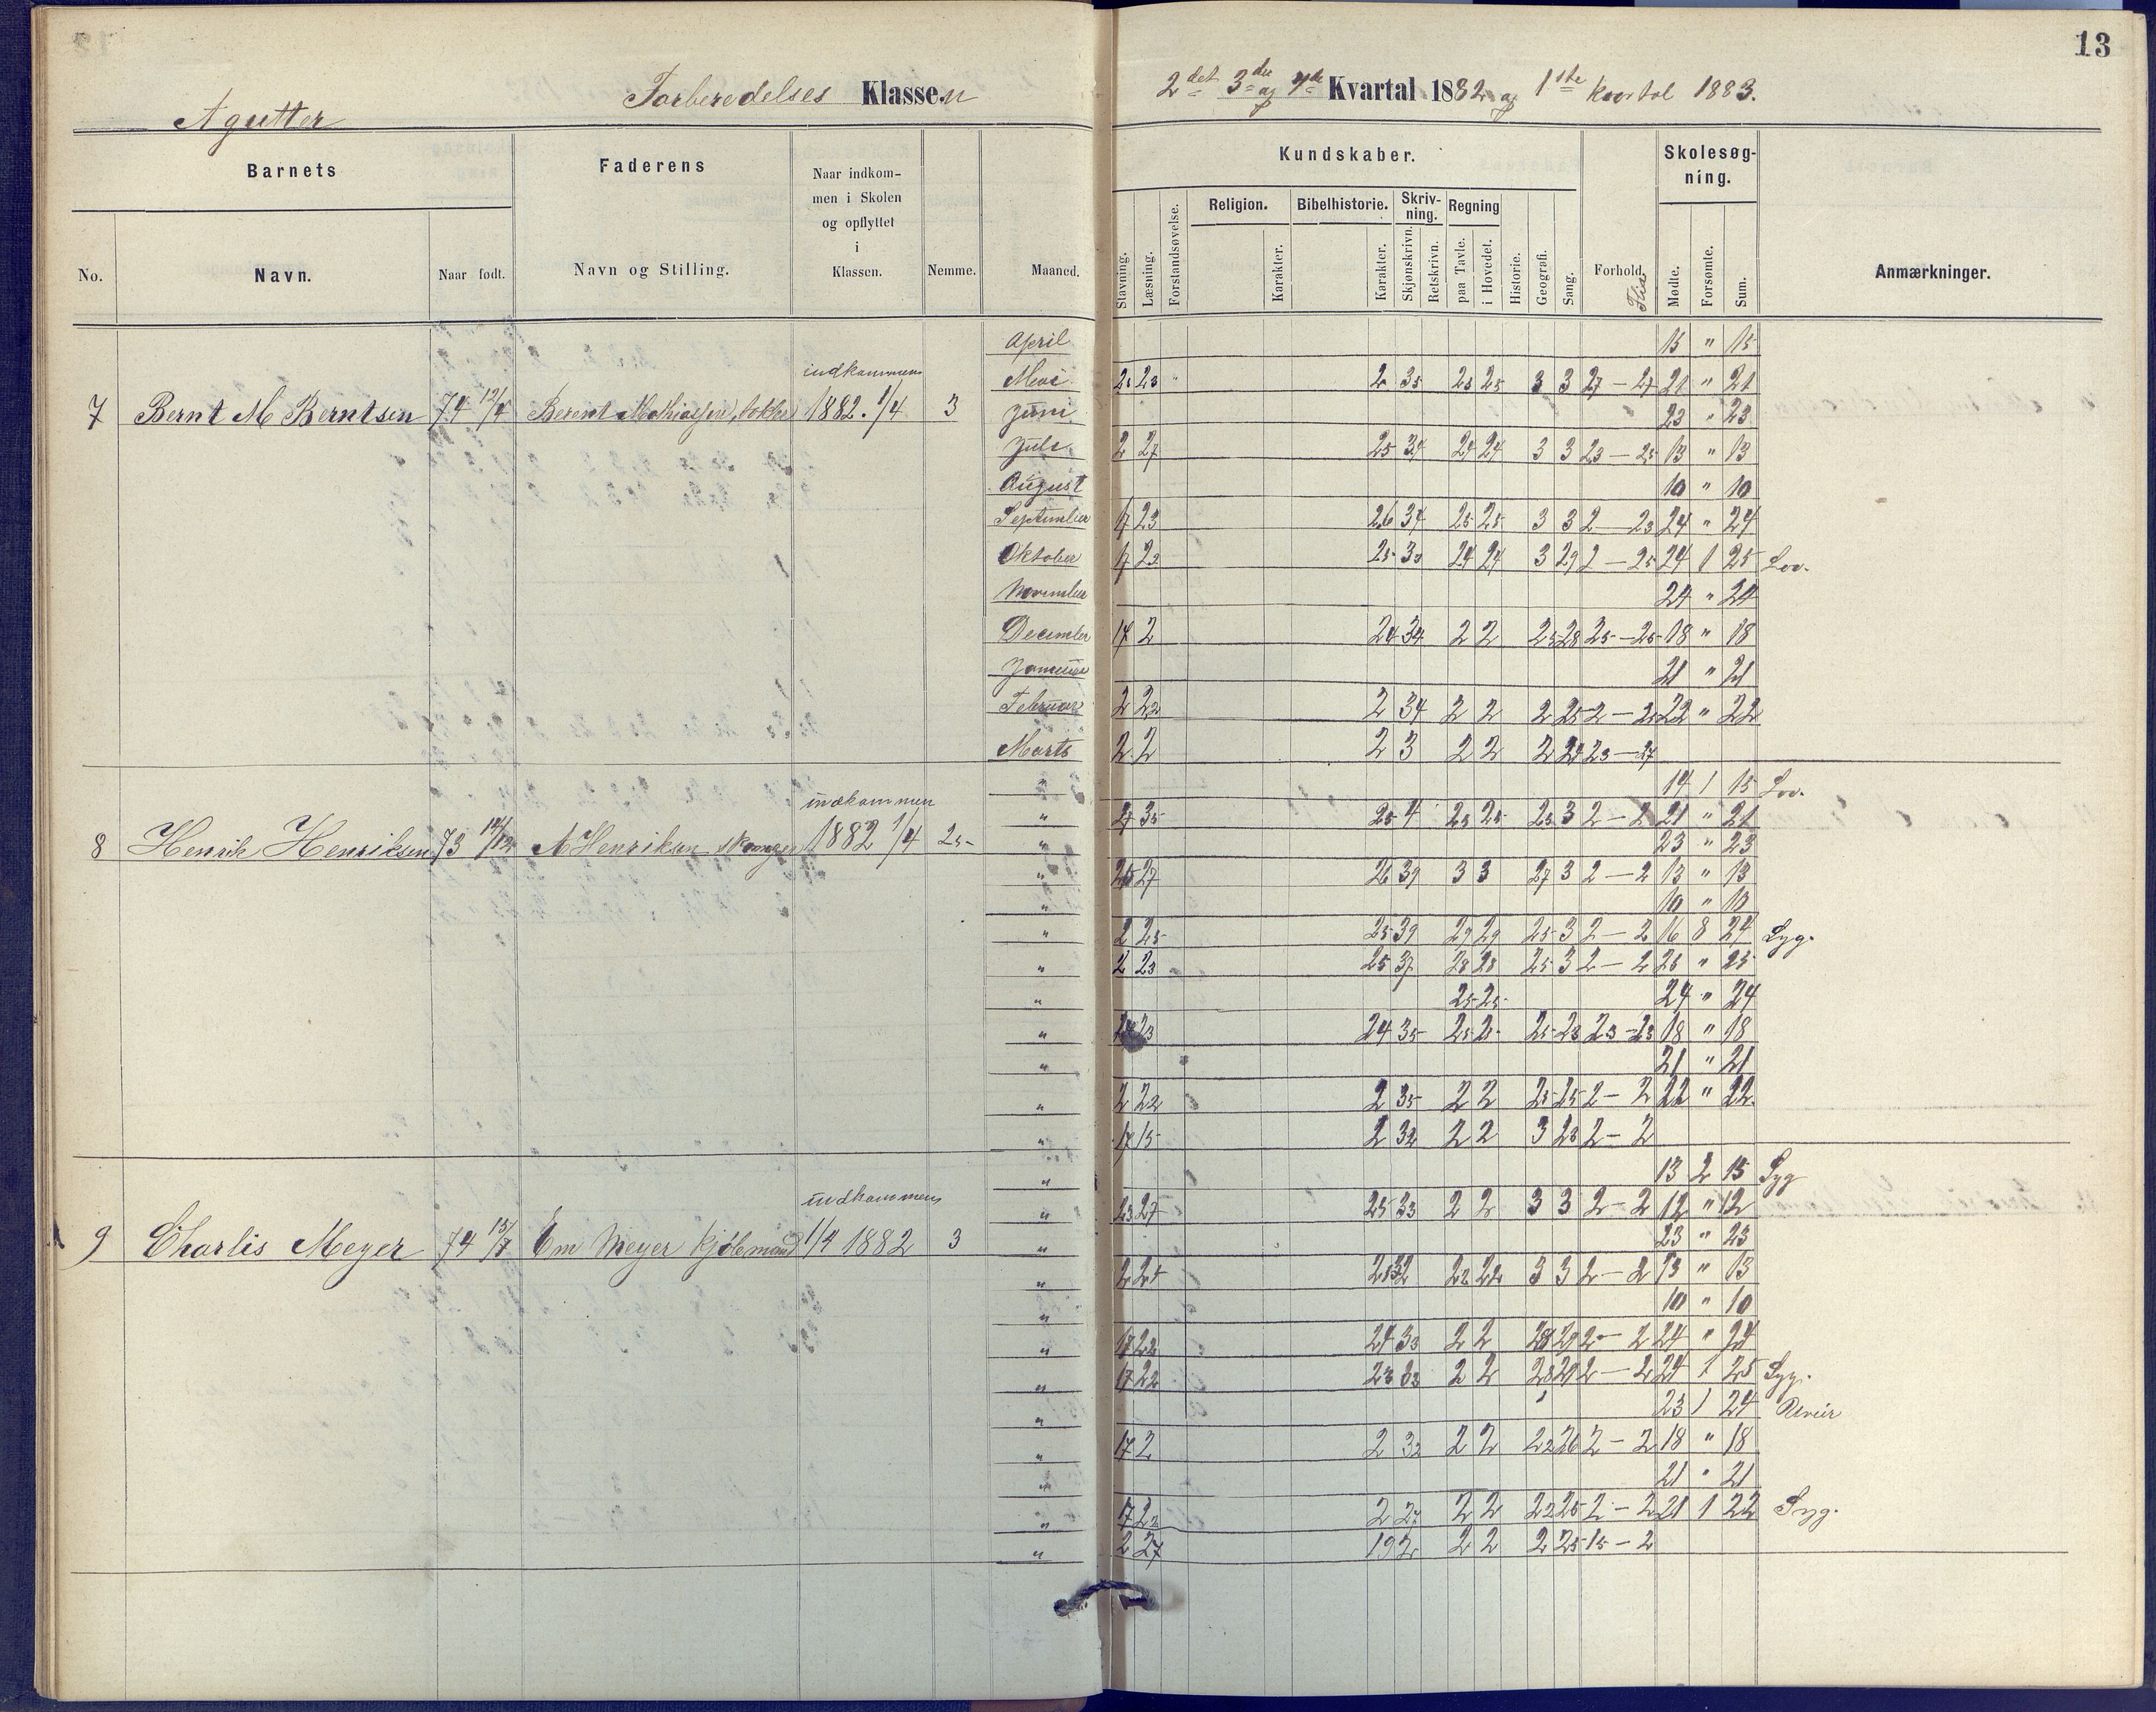 13
A gutter
Forberedelses Klassen
2det 3die og 4de Kvartal 1882 og 1ste Kvartal 1883.
Barnets
Faderens
Naar indkom-
men i Skolen
og opflyttet
i
Klassen.
Nemme.
Maaned.
No.
Navn.
Naar født.
Navn og Stilling.
Kundskaber.
Skolesøg-
ning.
Stavning.
Læsning.
Forstandsøvelse.
Religion.
Karakter.
Bibelhistorie.
Karakter.
Skriv-
ning.
Skjønskrivn.
Retskrivn.
Regning
paa Tavle.
i Hovedet.
Historie.
Geografi.
Sang.
Forhold.
Flid
Mødte.
Forsømte.
Sum.
Anmærkninger.
April 15 " 15
Mai 21 " 21
Juni 23 " 23
Juli 2 27 25 34 24 24 3 3 23 – 25 13 " 13
August 10 " 10
September 17 23 26 34 25 25 3 3 2 – 23 24 " 24
Oktober 24 1 25 Lov.
November 24 " 24
December 17 2 24 34 2 2 25 28 25 – 25 18 " 18
Januar 21 " 21
Februar 2 22 2 34 2 2 2 25 2 – 25 22 " 22
Marts 2 2 2 3 2 2 2 24 23 – 27
7 Bernt M Berntsen 74 12/4 1882. 1/4 3
indkommen
14 1 15 Lov.
27 35 25 4 25 25 25 3 2 – 2 21 " 21
23 " 23
27 26 39 3 3 27 3 2 – 2 13 " 13
10 " 10
2 25 25 39 29 29 25 3 2 – 2 16 8 24 Syg.
2 23 25 37 28 28 25 3 2 – 2 25 " 25
25 25 24 " 24
23 24 35 25 25 28 23 – 23 18 " 18
21 " 21
2 22 2 35 2 2 25 25 2 – 2 22 " 22
17 15 2 32 2 2 3 23 2 – 2
8 Henrik Henriksen 73 A Henriksen 1882 1/4 25
indkommen
13 2 15 Syg
23 27 25 33 2 2 3 3 2 – 2 12 " 12
23 " 23
22 22 3 3 2 – 2 13 " 13
10 " 10
17 22 24 33 2 2 28 29 2 – 2 24 " 24
17 22 23 33 2 2 28 29 2 – 2 24 1 25 Syg.
23 1 24 Uveir
17 2 2 32 2 2 22 26 2 – 2 18 " 18
21 " 21
17 22 2 27 2 2 22 25 2 – 2 21 1 22 Syg.
2 27 19 2 2 2 2 25 15 – 2
9 Charlis Meyer 74 Em Meyer Kjøbmand 1/4 1882 3
indkommen